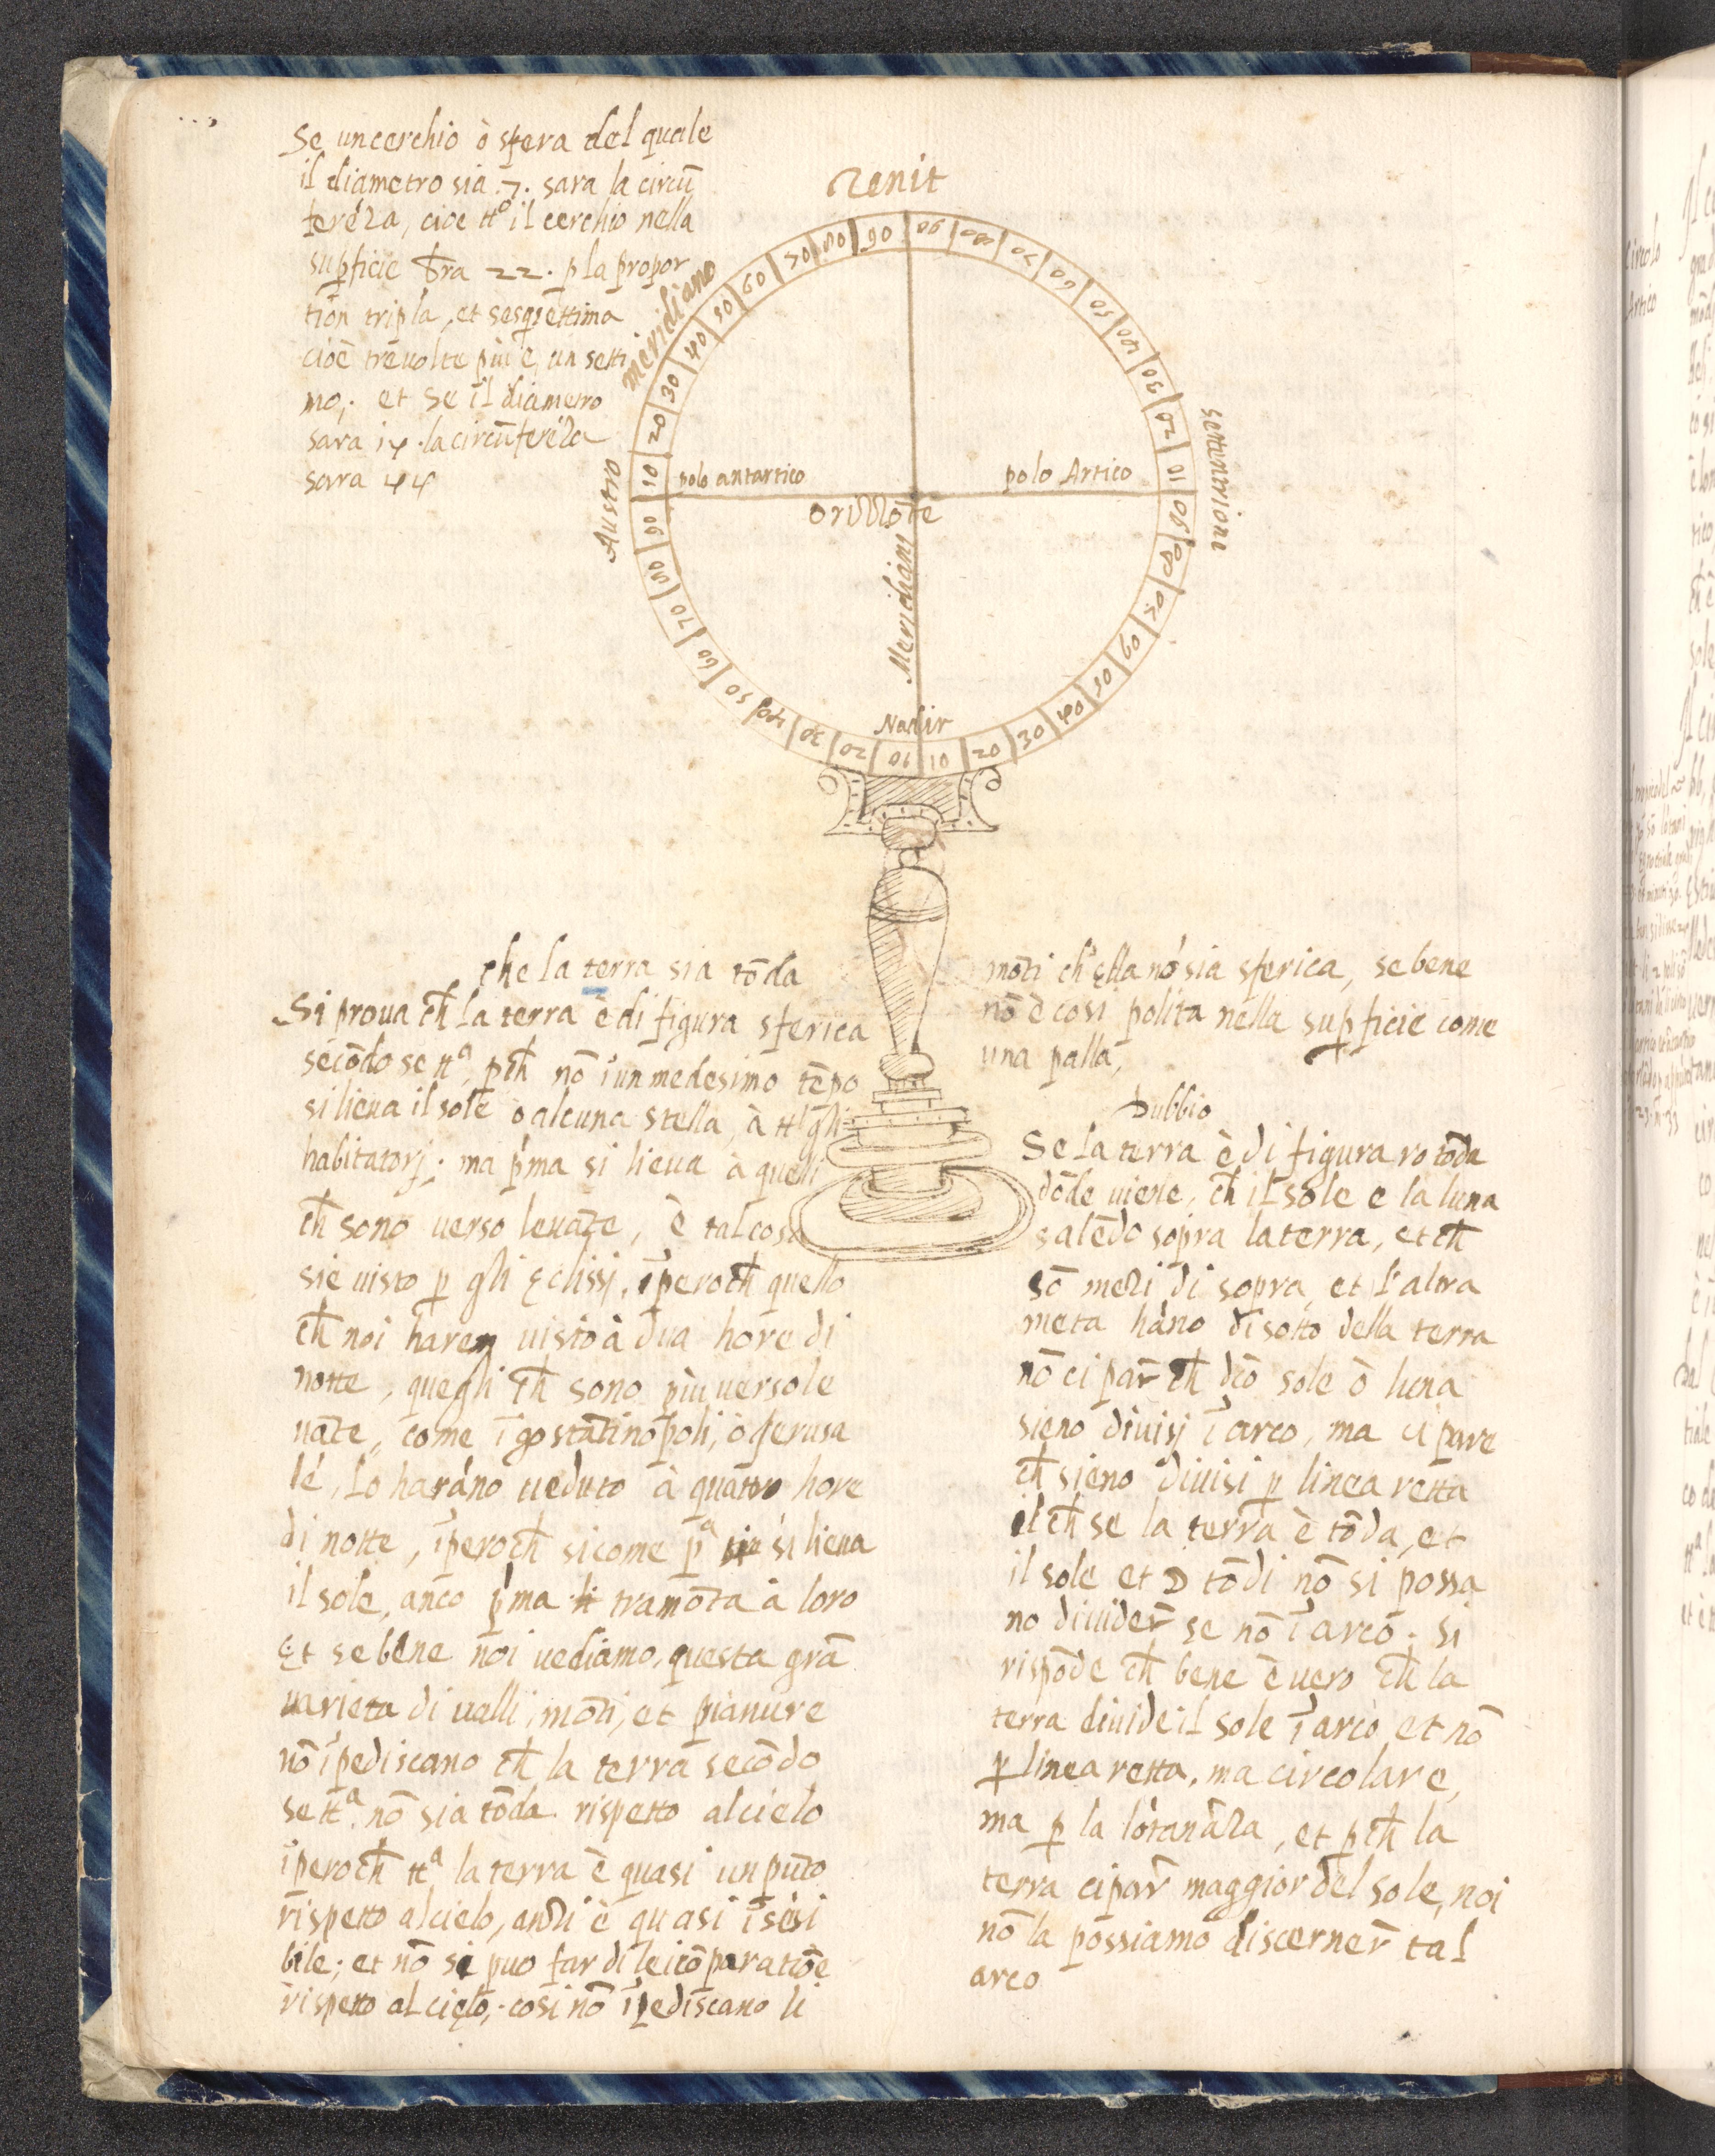 Se un cerchio ò sfera del quale
il diametro sia .7. sara la circū
ferēza, cioe tt⁰ il cerchio nella
sup̱ficie 22. p̱ la propor
tiōn tripla, et sesquisettima
cioè tre uolte piu è, un setti
mo,. et se il diametro
sara 14. la circūferēza
sara 44
zenit
meridiano
Austro
settentrione
polo antartico
polo Artico
orizzōte
Meridiano
Nadir
90 80 70 60 50 40 30 20 10
90 80 70 60 50 40 30 20 10
90 80 70 60 50 40 30 20 10
90 80 70 60 50 40 30 20 10
che la terra sia tōda
Si proua ch̄ la terra è di figura sferica
secōdo se ttᵃ, p̱ch̄ nō ī un medesimo tēpo
si lieua il sole ò alcuna stella, à tt' gli
habitatorj; ma p'ma si lieua à quelli
ch̄ sono uerso leuāte, è tal cosa
si è uisto p̱ gli Eclissj, īperoch̄ quello
ch̄ noi harem uisto à dua hore di
notte, quegli ch̄ sono piu uerso le
uāte, come ī gostātinopoli, ò Gerusa
lē, lo harāno ueduto à quattro hore
di notte, īperoch̄ si come pᵃ si lieua
il sole, anco p'ma tramōta à loro
Et se bene noi uediamo, questa grā
uarieta di ualli, mōti, et pianure
nō īpediscano ch̄ la terra secōdo
se ttᵃ. nō sia tōda rispetto al cielo
īperoch̄ ttᵃ la terra è quasi un pūto
rispetto al cielo, anzi è quasi īsēsi
bile; et nō si puo far di lei cōparatiōe
rispetto al cielo,. cosi nō īpediscano li
mōti ch' Ella nō sia sferica, se bene
nō è cosi polita nella sup̱ficie come
una palla,
Dubbio
Se la terra è di figura rotōda
dōde uiene, ch̄ il sole e la luna
salēdo sopra la terra, et ch̄
sō mezi di sopra, et l'altra
meta hāno di sotto della terra
nō ci par̄ ch̄ dc̄o sole ò luna
sieno diuisj ī arco, ma ci pare
ch̄ sieno diuisi p̱ linea retta
il ch̄ se la terra è tōda, et
il sole et ☽ tōdi nō si possa
no diuider̄ se nō ī arco. si
rispōde ch̄ bene è uero ch̄ la
terra diuide il sole ī arco et nō
p̱ linea retta, ma circolare,
ma p̱ la lōtanāza, et p̱ch̄ la
terra ci par̄ maggior del sole, noi
nō la possiamo discerner̄ tal
arco
Circolo
Artico